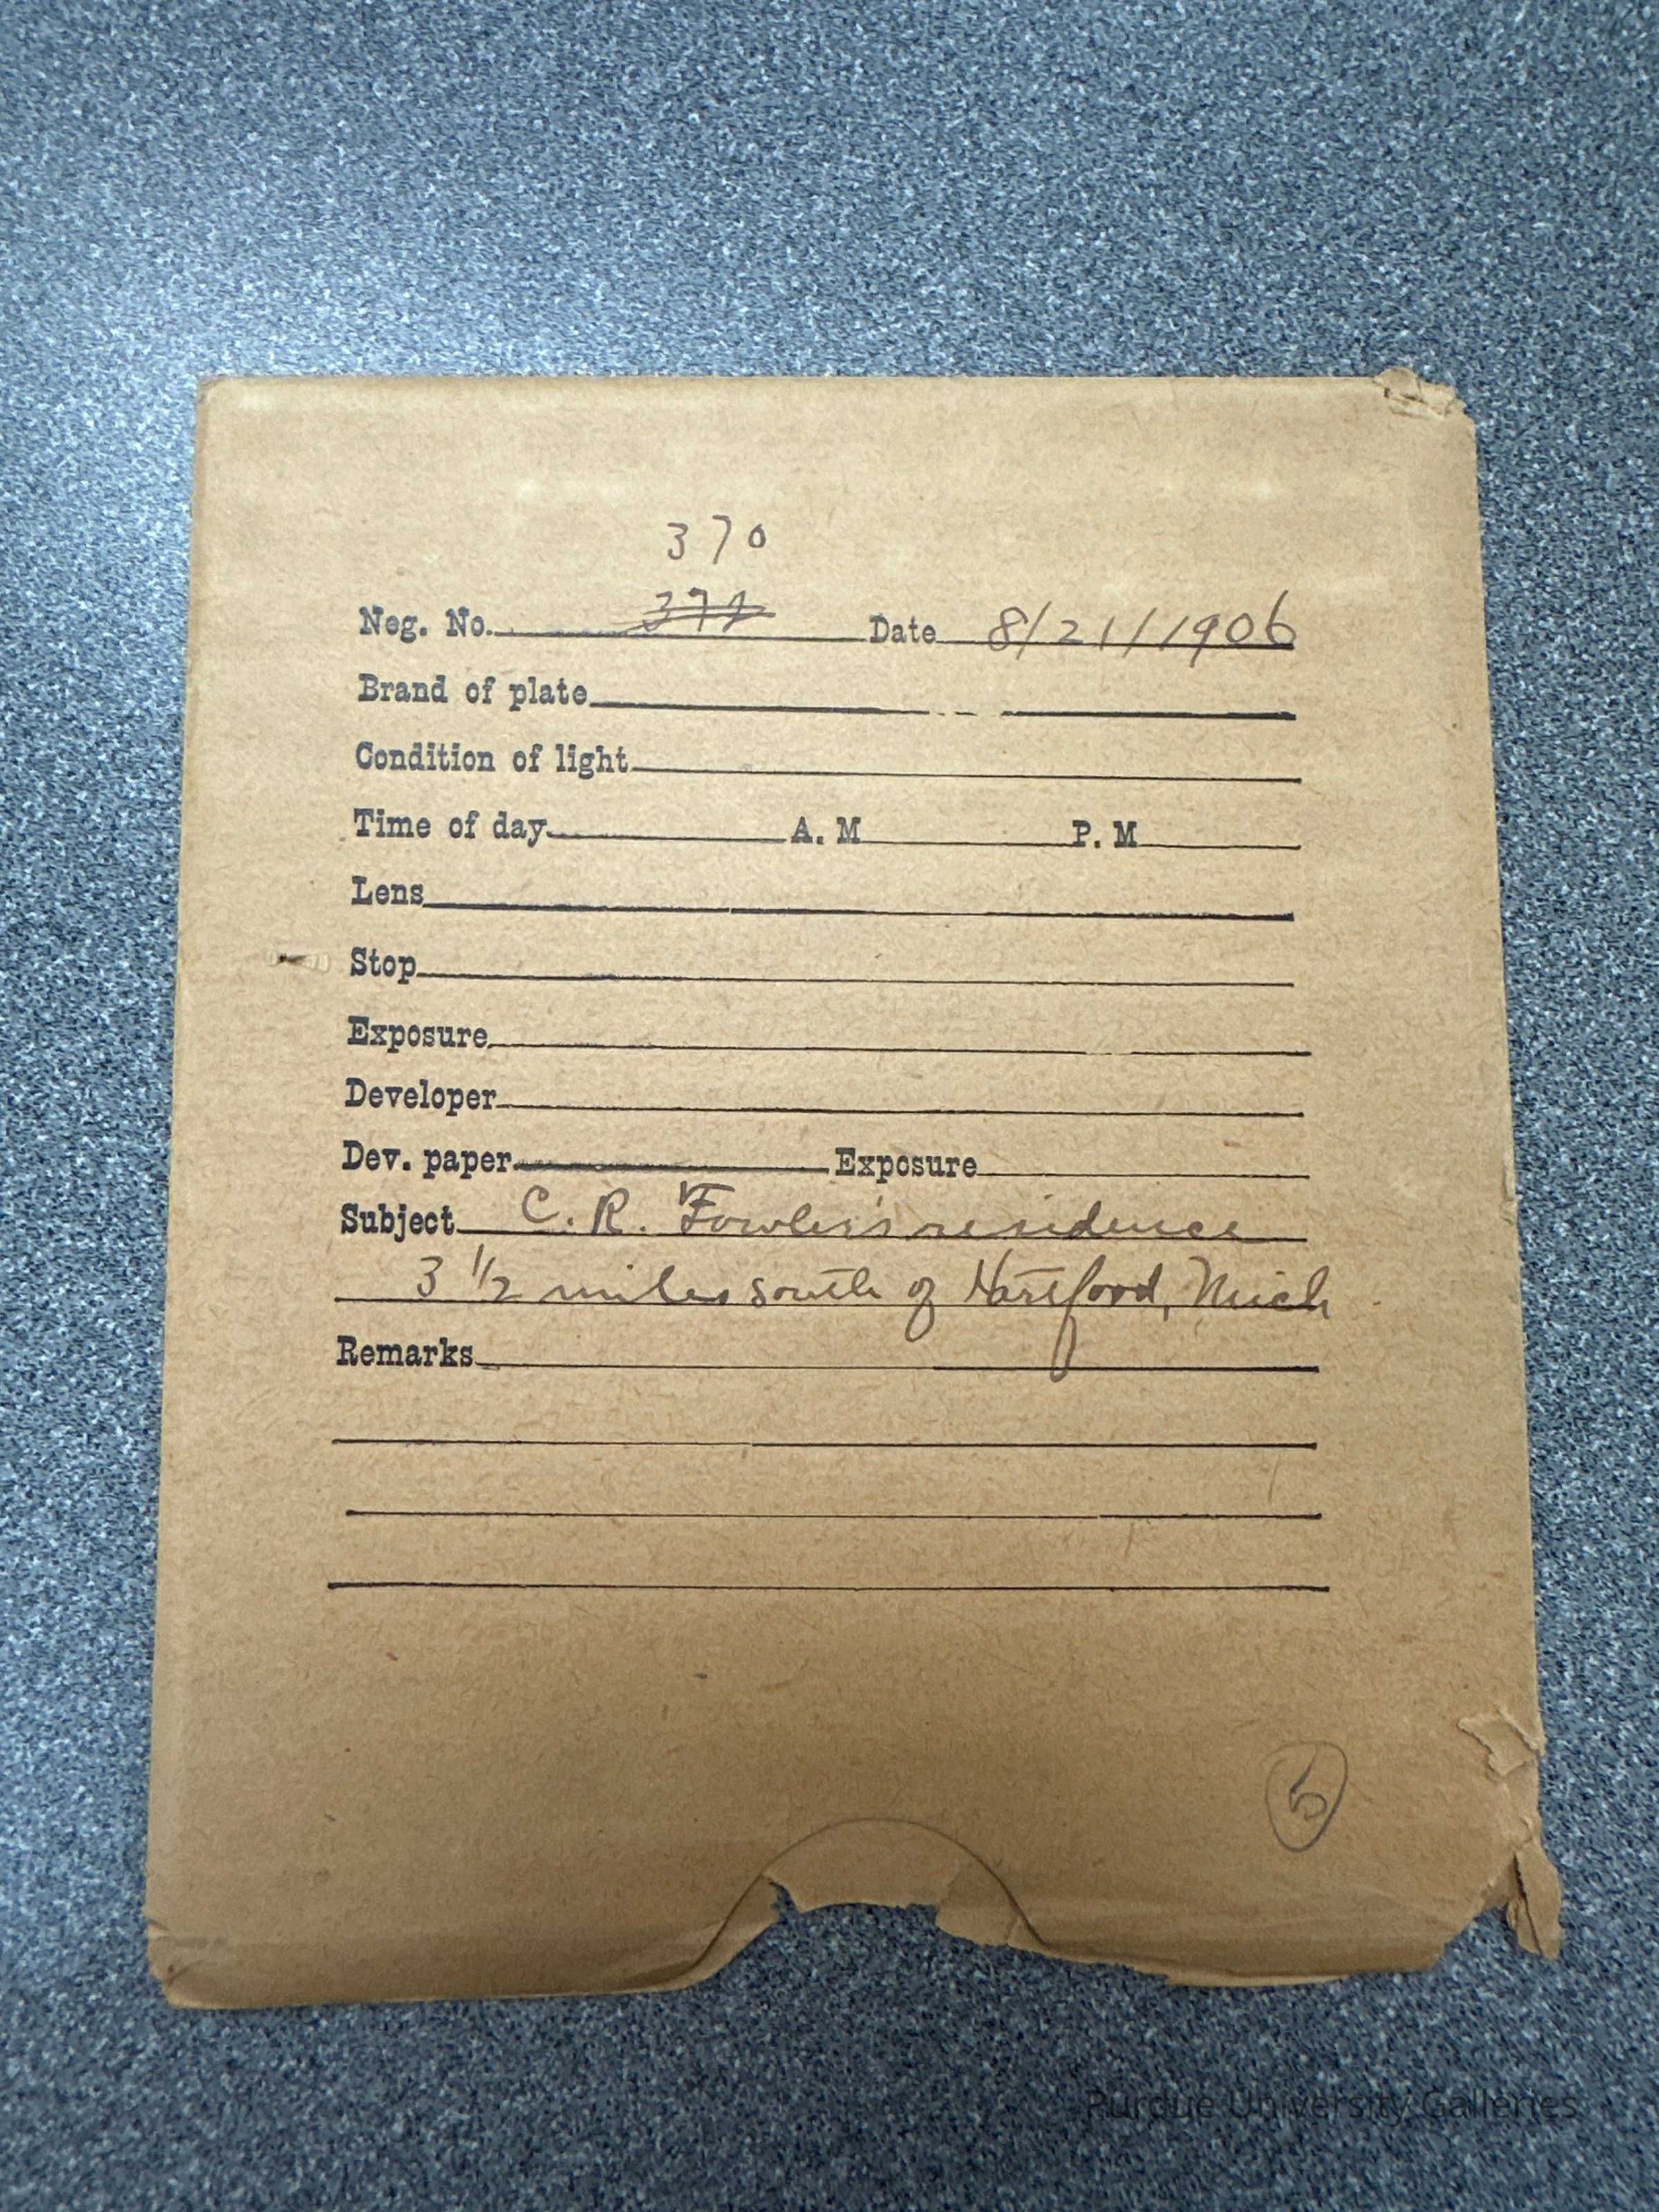 370
Neg. No. 372 Date 8/21/1906
Brand of plate
Condition of light
Time of day A. M P. M
Lens
Stop
Exposure
Developer
Dev. paper Exposure
Subject C. R. Fowler's residence
3 1/2 miles south of Hartford, Mich
Remarks
5
Purdue University Galleries